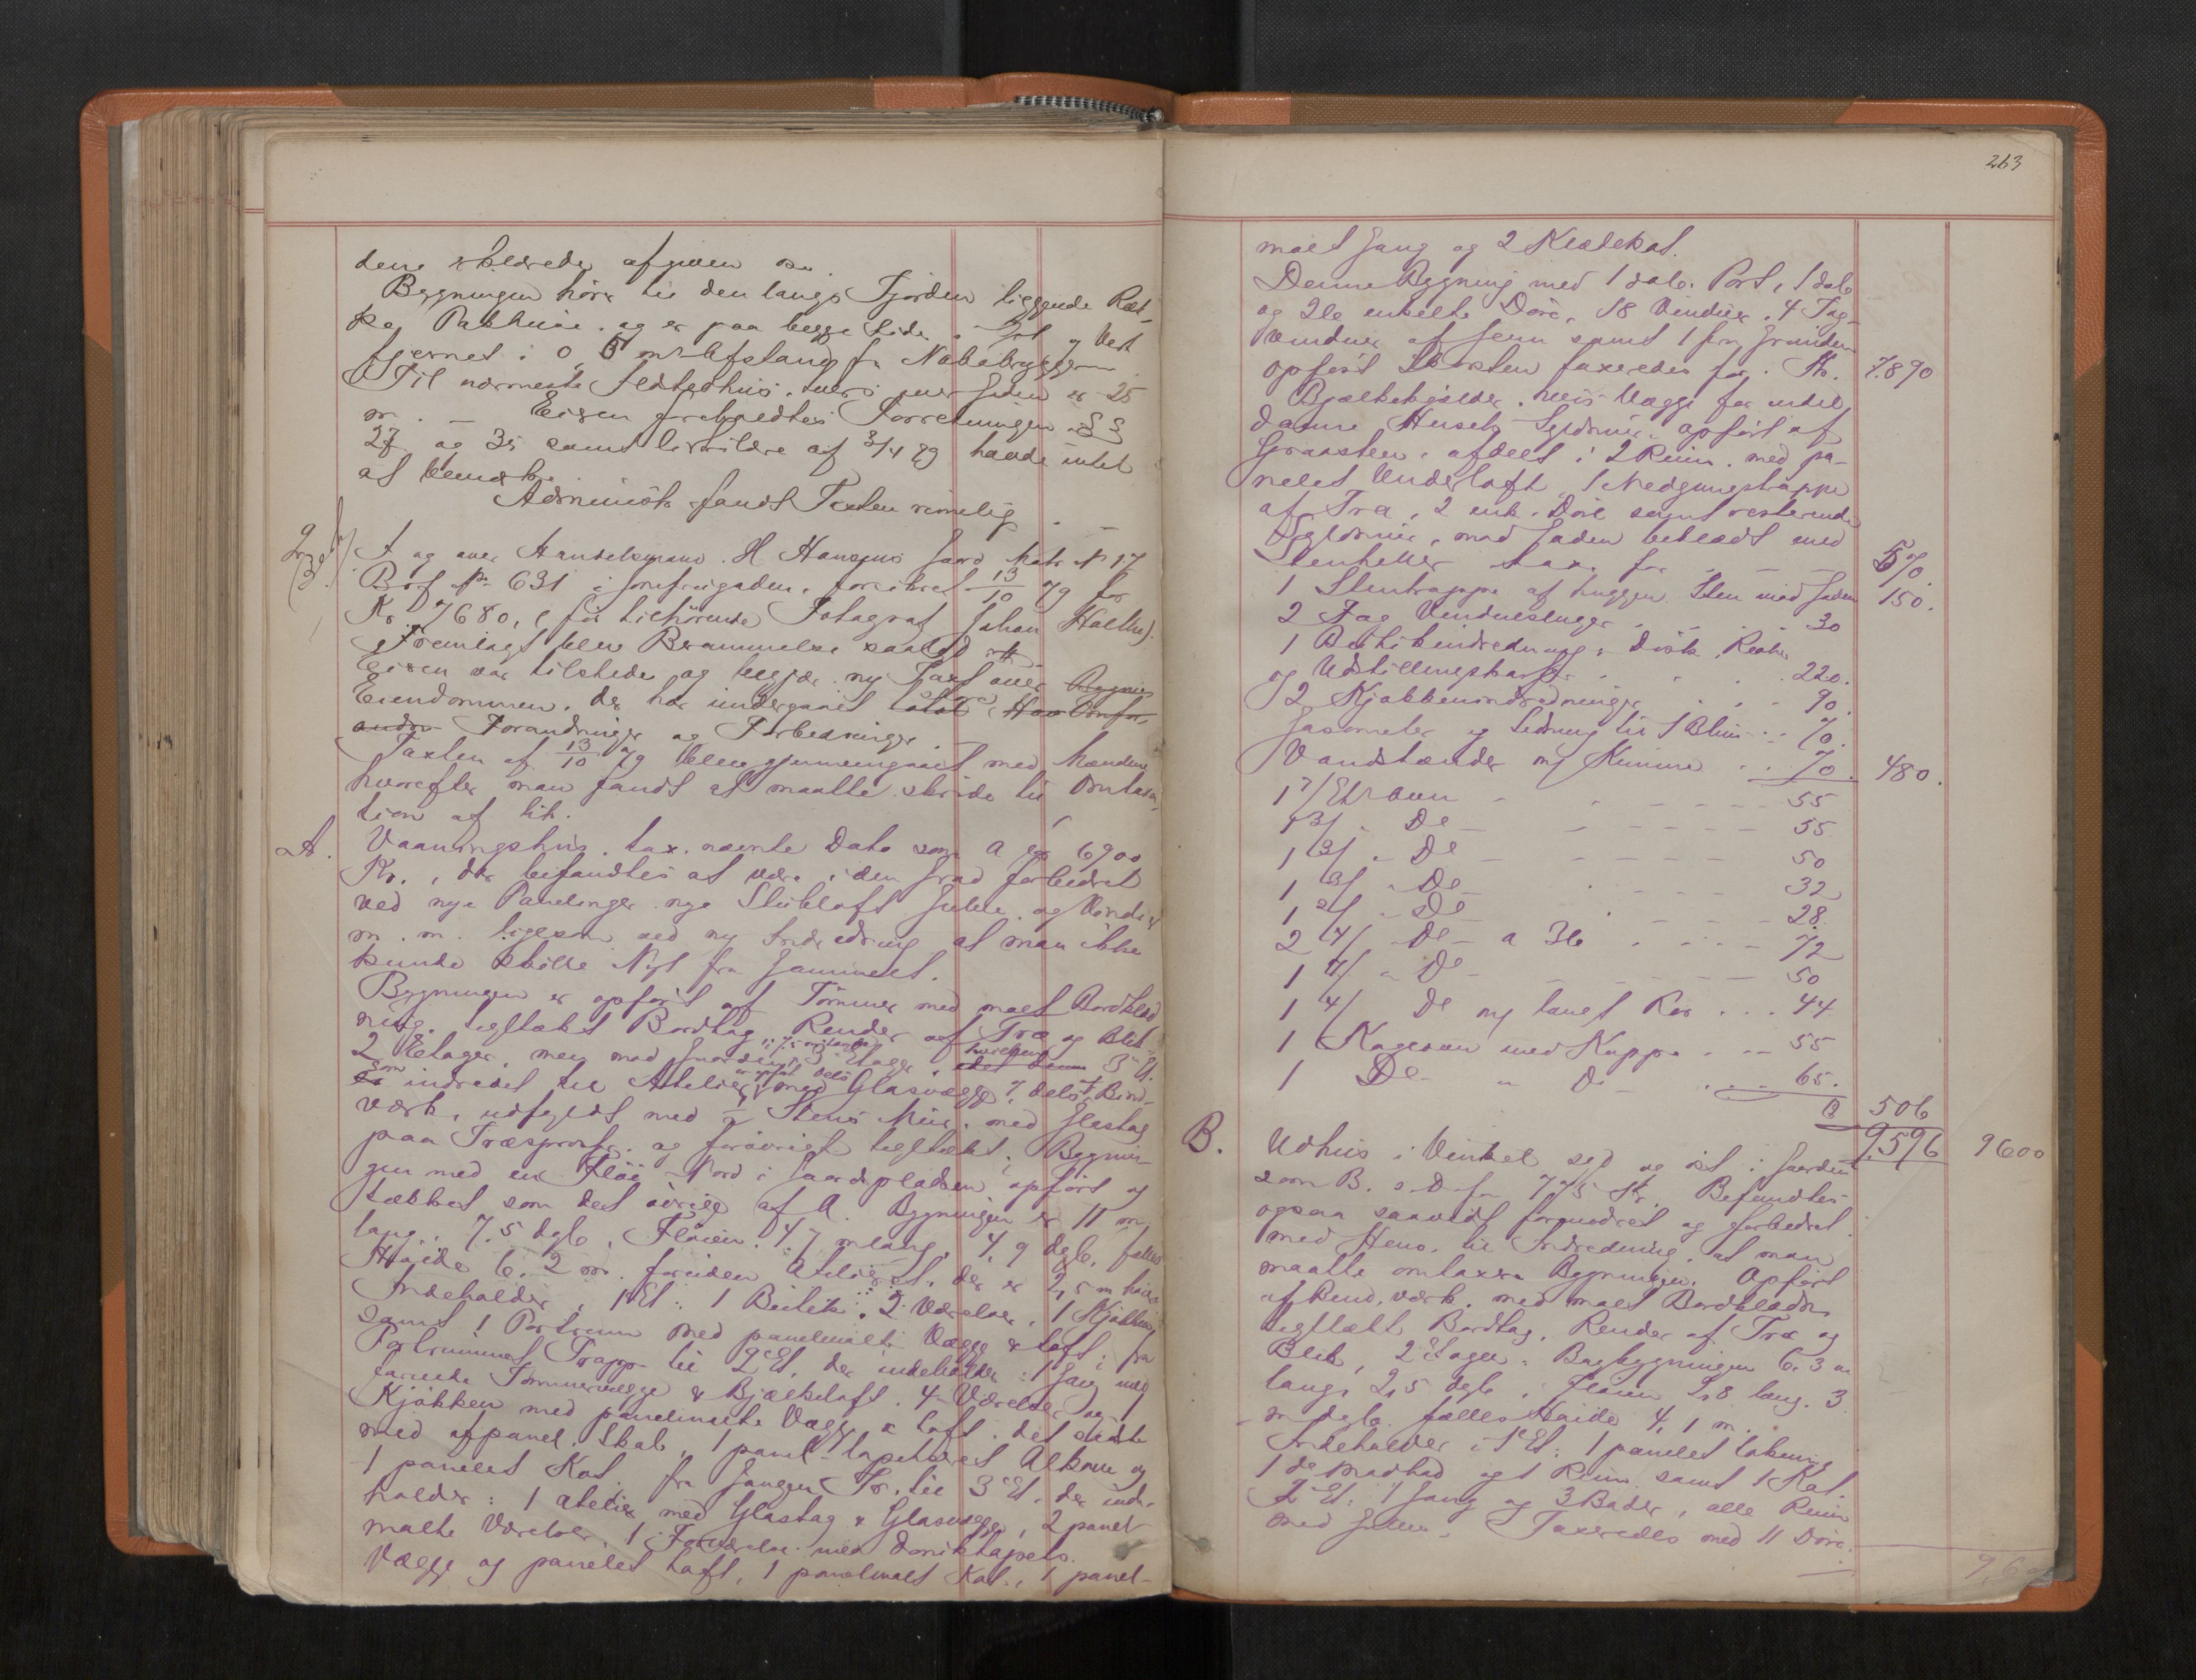 dens afgiven
Bygningen hører til den langs Fjorden liggende Ræk-
ke Pakhuse og er paa begge Sider i Øst og Vest
fjernet i 0,5 m Afstand fr Nabobrygger
Til nærmeste Ildstedhus tvers over Gaden er 25
m. — Eieren foreholdtes Forretningen §§
27 og 35 samt af 3/4 79 havde intet
at bemærke
fandt Taxten rimelig
A og over Handelsmand H Hansens Gaard Matr № 17
Brf № 631 i Jomfrugaden, forsikret 13/10 79 for
Kr. 7680, (før tilhørende Fotograf Johan Holthe).
Fremlagt blev Brammelse
Eieren var tilstede og begjær. ny Taxt over Bygnin
Eiendommen, der har undergaaet
Forandringer og Forbedringer.
Taxten af 13/10 79 blev gjennemgaaet med Mændene
hvorefter man fandt at maatte skride til Omtaxa-
tion af lit.
A. Vaaningshus, tax. nævnte Dato som A for 6900
Kr., der befandtes at være i den Grad forbedret
ved nye Panelinger nye Stubloft Gulve og Vinduer
m. m. ligesom ved ny Indredning at man ikke
kunde skille Nyt fra Gammelt.
Bygningen er opført af Tømmer med malet Bordklæd
ning, tegltækt Bordtag, Render af Træ og Blik
2 Etager, men mod 3 Etager, hvilken 3 Et.
som indredet til Atelier, er opført dels med Glasvægge, dels i Bind-
værk, udfyldt med ½ Stens Mur, med Glastag
paa Træsprosser og forøvrigt tegltækt. Bygnin-
gen med en Fløi Nord i Gaardspladsen opført og
tækket som det øvrige af A. Bygningen er 11 m
lang, 7,5 dyb, Fløien 4,7 m lang, 4,9 dyb, fælles
Høide 6,2 m. foruden Atelieret, der er 2,5 m høit
Indeholder i 1 Et: 1 Butik, 2 Værelser, 1 Kjøkken
samt 1 Portrum med panelmalte Vægge & Loft; fra
Portrummet Trappe til 2 Et, der indeholder: 1 Gang med
Tømmervægge & Bjælkeloft, 4 Værelser og 1
Kjøkken med panelmalte Vægge & Loft, det sidste
med afpanel. Skab, 1 panel-tapetseret Alkove og
1 panelet Kot. fra Gangen Tr. til 3 Et, der inde-
holder: 1 Atelier med Glastag & Glasvægge, 2 panel-
malte Værelser, 1 Forværelse med
Vægge og panelet Loft, 1 panelmalt Kot, 1 panel-
263
malt Gang og 2 Klædekot.
Denne Bygning med 1 dob. Port, 1 dob
og 26 enkelte Døre, 18 Vinduer, 4 Tag-
vinduer af Jern samt 1 fra Grunden
opført Skorsten taxeredes for. Kr. 7.890
Bjælkekjælder, hvis Vægge for endel
danne Husets Syldmur, opført af
Graasten, afdelt i 2 Rum, med pa-
nelet Underloft, 1 Nedgangstrappe
af Træ, 2 enk. Døre samt resterende
Syldmur, mod Gaden beklædt med
Stenheller tax. for — 570.
1 Stentrappe af huggen Sten mod Gaden 150.
2 Fag Vinduesluger . . 30
1 Butikindredning: Disk, Reoler
og Udstillingskarm . . . 220.
2 Kjøkkenindredninger . . 90.
Gasometer og Ledning til 1 Blus . . 70.
Vandstænder og Kumme . . 70. 480.
1 7/ Et Ovn - - - 55
1 3/ - Do - - - 55
1 3/ - Do - - - 50
1 3/ - Do - - - 32
1 2/ - Do - - - 28.
2 4/ - Do - a 36 - - - 72
1 4/ - Do - - - 50
1 4/ Do og langt Rør . . . 44
1 Kogeovn med Kappe . . . 55
1 Do - " Do . . . 65.
506
9.596 9600
B. Udhus i Vinkel syd og øst i Gaarden
som B. s. D. for 775 Kr. Befandtes
ogsaa saavidt forandret og forbedret
med Hens. til Indredning, at man
maatte omtaxere Bygningen. Opført
af Bind.værk, med malt Bordklædn.
tegltækt Bordtag, Render af Træ og
Blik, 2 Etager. Bagbygningen 6,3 m
lang, 2,5 dyb, Fløien 2,8 lang, 3
m dyb, fælles Høide 4,1 m.
Indeholder i 1 Et: 1 panelet Lokum,
1 do Madbod og 1 Rum samt 1 Kot.
2 Et: 1 Gang og 3 Boder, alle Rum
med Gulve. Taxeredes med 11 Døre.
9,60